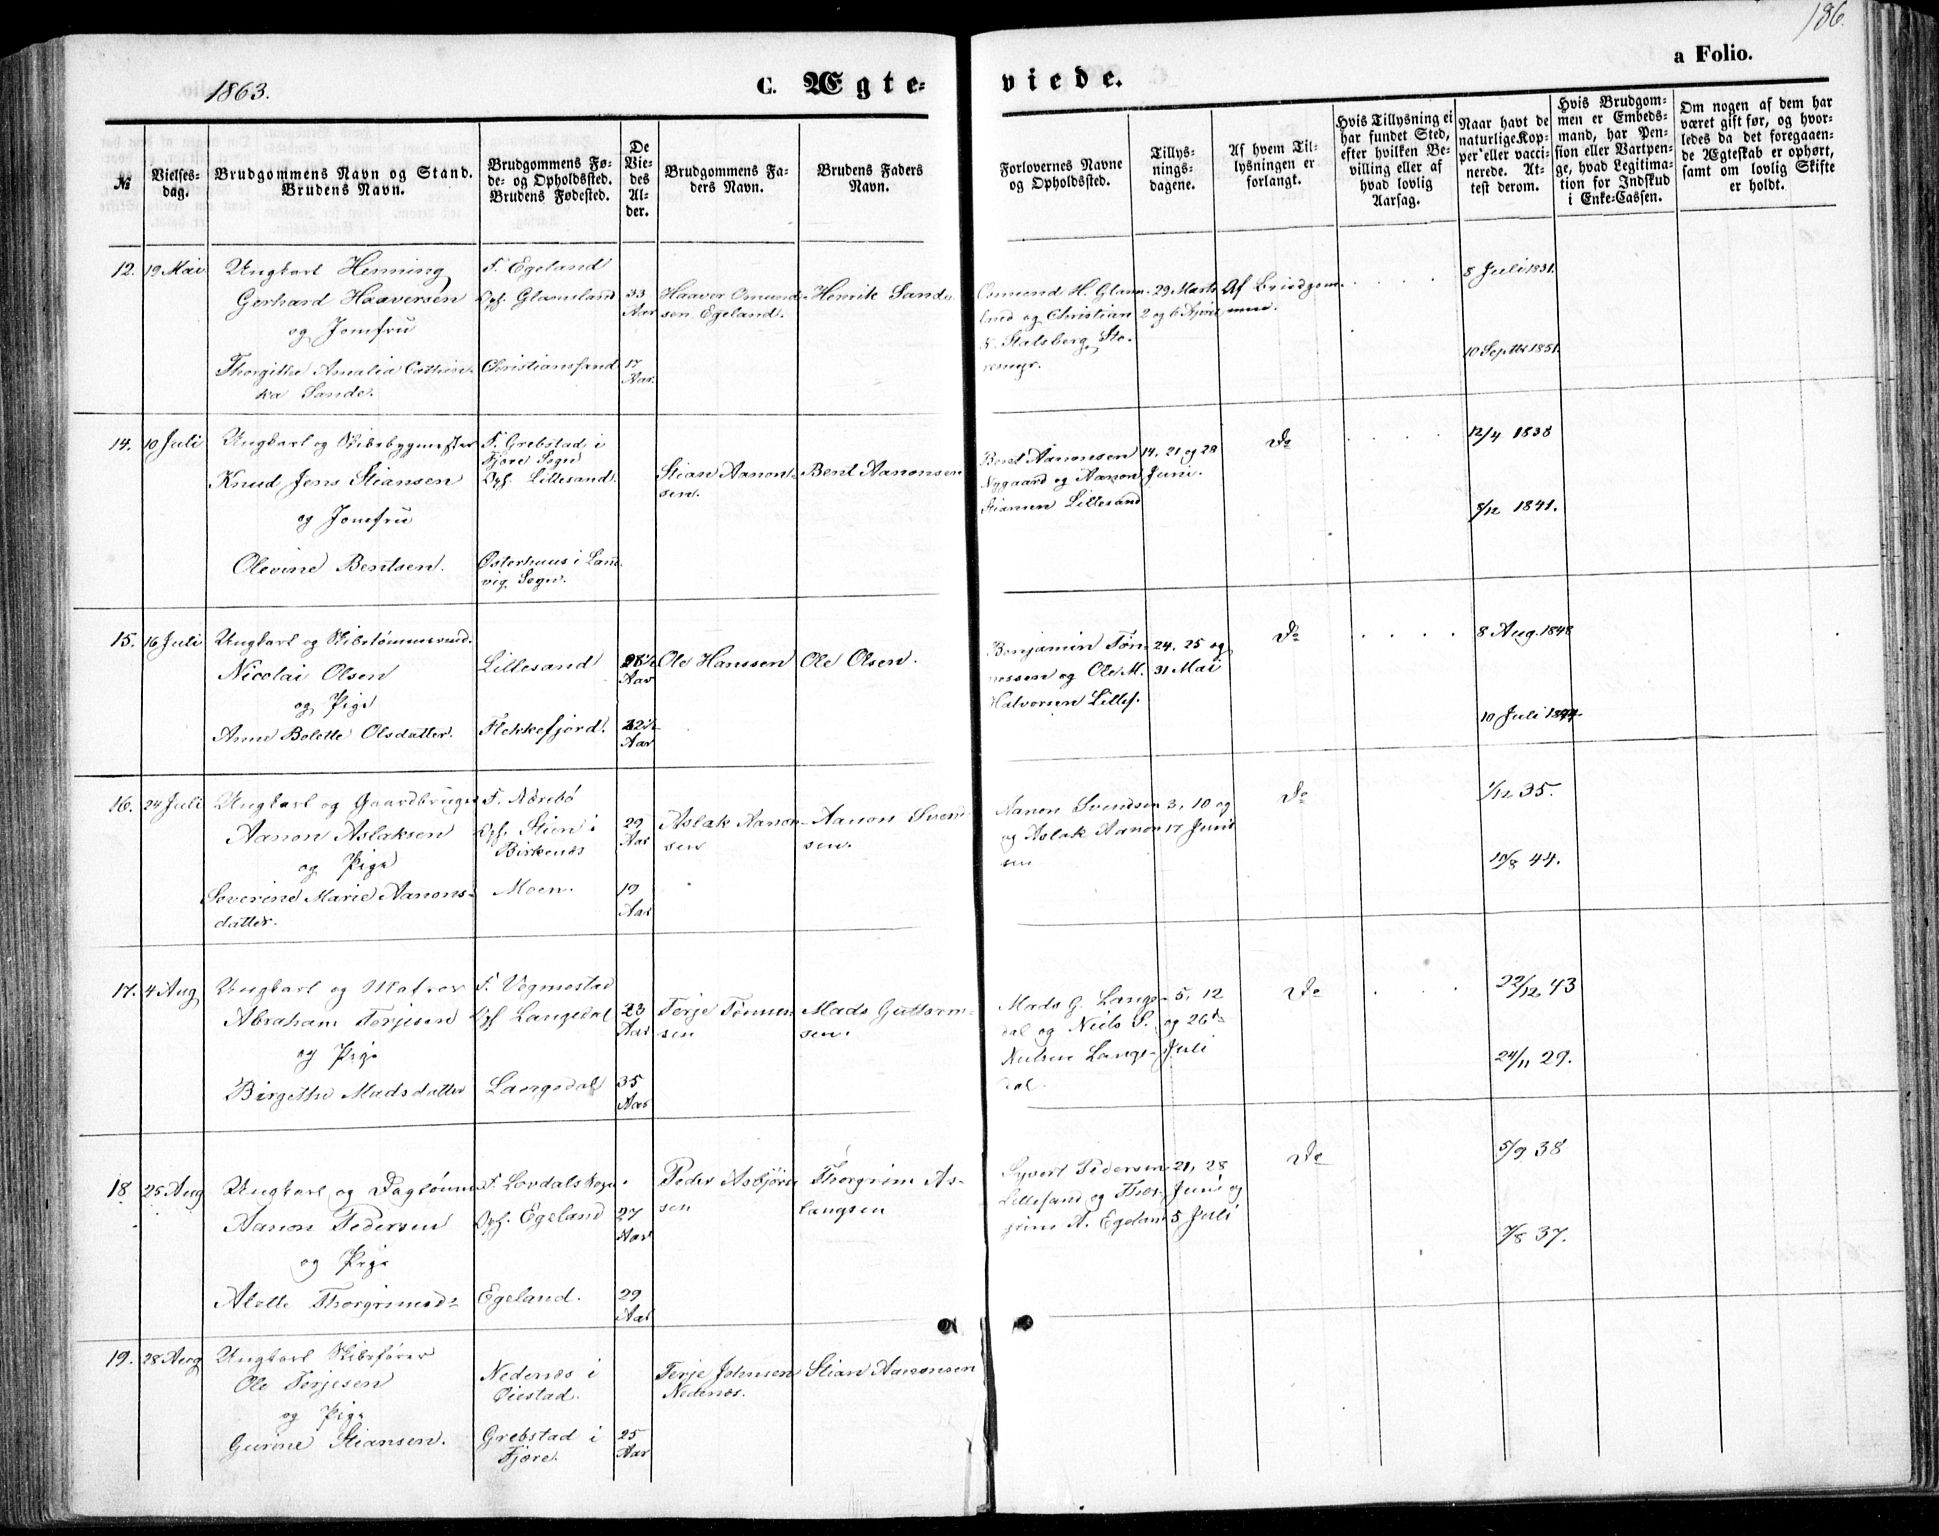 186.
a Folio.
1863.
C. Ægte-
viede.
№
Vielses-
dag.
Brudgommens Navn og Stand.
Brudens Navn.
Brudgommens Fø-
de- og Opholdssted.
Brudens Fødested.
De
Vie-
des
Al-
der.
Brudgommens Fa-
ders Navn.
Brudens Faders
Navn.
Forlovernes Navne
og Opholdssted.
Tillys-
nings-
dagene.
Af hvem Til-
lysningen er
forlangt.
Hvis Tillysning ei
har fundet Sted,
efter hvilken Be-
villing eller af
hvad lovlig
Aarsag.
Naar havt de
naturlige Kop-
per eller vacci-
nerede. At-
test derom.
Hvis Brudgom-
men er Embeds-
mand, har Pen-
sion eller Vartpen-
ge, hvad Legitima-
tion for Indskud
i Enke-Cassen.
Om nogen af dem har
været gift før, og hvor-
ledes da det foregaaen-
de Ægteskab er ophørt,
samt om lovlig Skifte
er holdt.
12.
19 Mai
Ungkarl Henning
Gerhard Haaversen
og Jomfru
Thorgithe Amalia Cathin-
ka Sande.
F. Egeland
Oph. Glamsland
Christianssand
33
Aar
17
Aar.
Haaver Omund-
sen Egeland.
Henrik Sande.
Osmund H. Glams-
land og Christian
K. Stalsberg, Sto-
remyr.
29 Marts
2 og 6 April
Af Brudgom-
men.
8 Juli 1831.
10 Septbr 1851.
14.
10 Juli
Ungkarl og Skibsbygmester
Knud Jens Stiansen
og Jomfru
Olevine Bentsen.
F. Grebstad i
Fjære Sogn
Oph. Lillesand.
Østerhuus i Land-
vig Sogn.
Stian Aanon-
sen.
Bent Aanonsen
Bent Aanonsen
Nygaard og Aanon
Stiansen Lillesand
14, 21 og 28
Juni.
Do
12/4 1838
8/12 1841.
15.
16 Juli
Ungkarl og Skibstømmermd.
Nicolai Olsen
og Pige
Anne Bolette Olsdatter.
Lillesand
Flekkefjord.
Aar
22½
Aar
Ole Hanssen
Ole Olsen.
Benjamin Tøn-
nessen og Ole M.
Halvorsen Lilles.
24, 25 og
31 Mai
Do
8 Aug. 1848
10 Juli 1844.
16.
24 Juli
Ungkarl og Gaardbruger
Aanon Aslaksen
og Pige
Severine Marie Aanons-
datter.
F. Nærebø
Oph. Stien i
Birkenæs
Moen.
29
Aar
19
Aar
Aslak Aanon-
sen
Aanon Svend-
sen.
Aanon Svendsen
og Aslak Aanon-
sen
3, 10 og
17 Juni
Do
1/12 35.
10/8 44.
17.
4 Aug
Ungkarl og Matros
Abraham Terjesen
og Pige
Birgithe Madsdatter
F. Vegmostad
Oph Langedal
Langedal
23
Aar
35
Aar
Terje Tønnes-
sen
Mads Guttorm-
sen.
Mads G. Lange-
dal og Niels S.
Nielsen Lange-
dal.
5, 12
og 26de
Juli
Do
22/12 43
24/11 29.
18
25 Aug
Ungkarl og Dagløner
Aanon Pedersen
og Pige
Alette Thorgrimsd-
F. Lovdalskogen
Oph. Egeland
Egeland.
27
Aar
29
Aar
Peder Asbjørn-
sen
Thorgrim As-
langsen
Syvert Pedersen
Lillesand og Thor-
grim A. Egeland
21, 28
Juni og
5 Juli
Do
5/9 38
7/8 37.
19.
28 Aug
Ungkarl Skibsfører
Ole Terjesen
og Pige
Gurine Stiansen.
Nedenæs i
Øiestad.
Grebstad i
Fjære.
25
Aar
Terje Johnsen
Nedenæs.
Stian Aanonsen